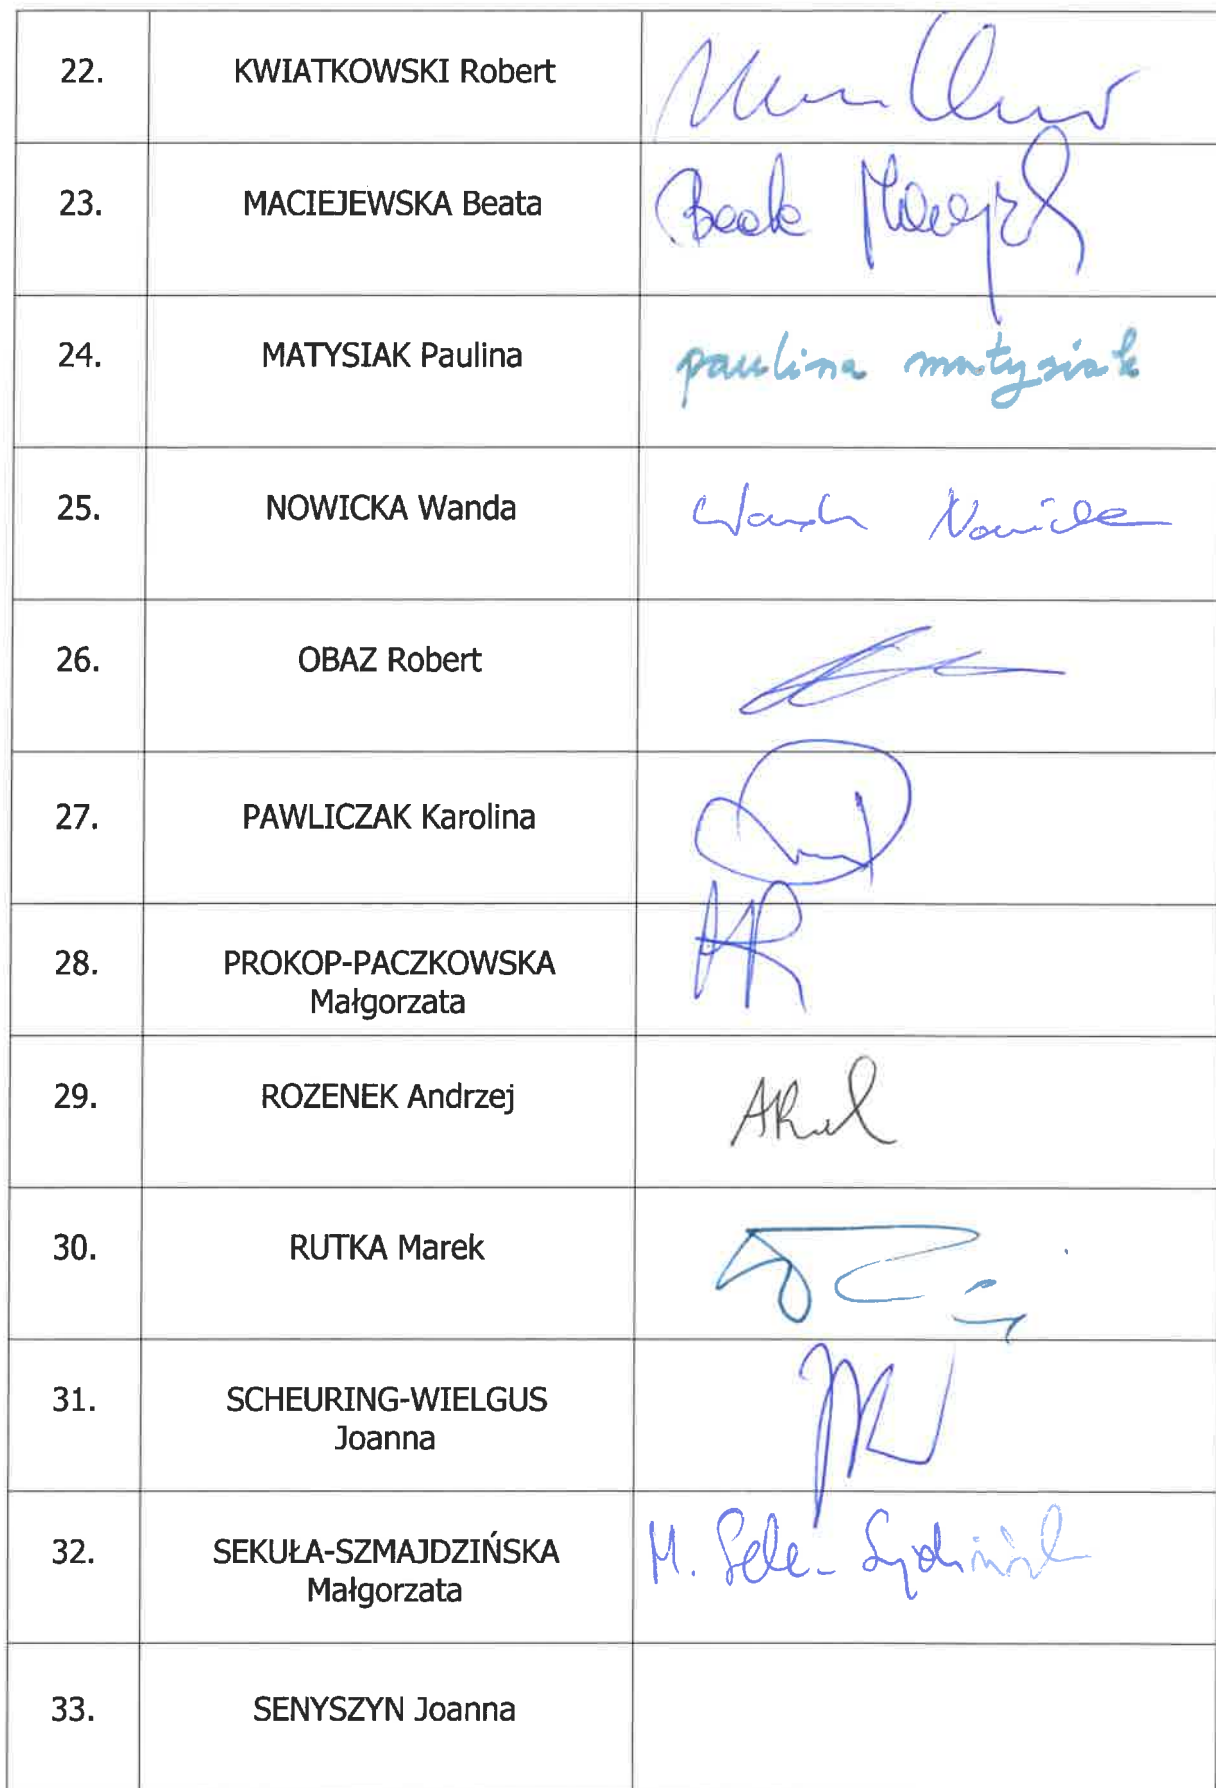 22. KWIATKOWSKI Robert
23. MACIEJEWSKA Beata
24. MATYSIAK Paulina paulina matysiak
25. NOWICKA Wanda Wanda Nowicka
26. OBAZ Robert
27. PAWLICZAK Karolina
28. PROKOP-PACZKOWSKA
Małgorzata
29. ROZENEK Andrzej
30. RUTKA Marek
31. SCHEURING-WIELGUS
Joanna
32. SEKUŁA-SZMAJDZIŃSKA M.
Małgorzata
33. SENYSZYN Joanna